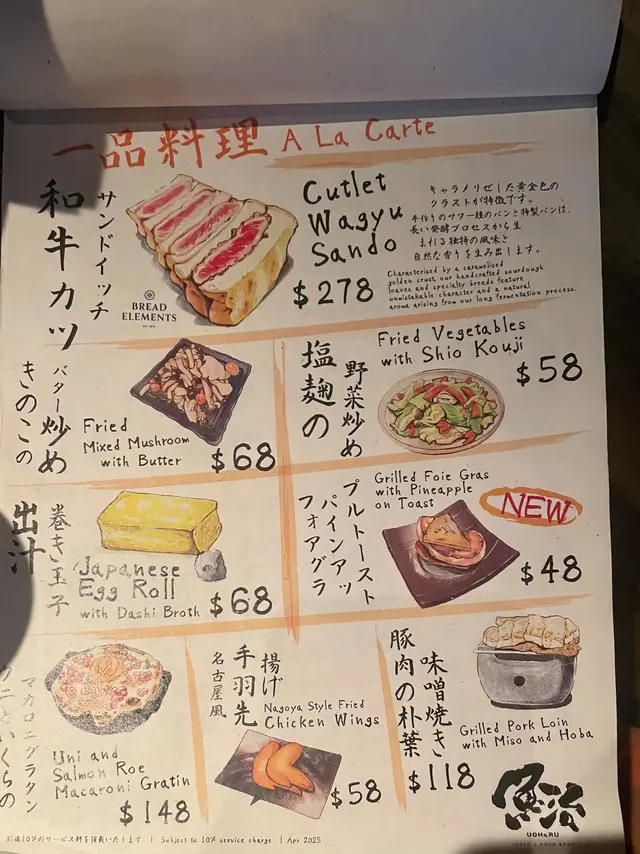 一品料理 A La Carte
和牛カツ
サンドイッチ
Cutlet
Wagyu
Sando
$278
キャラメリゼした黄金色の
クラストが特徴です。
手作りのサワー種のパンと特製パンは、
長い発酵プロセスから生
まれる独特の風味と
自然な香りを生み出します。
Characterised by a caramelised
golden crust, our handcrafted sourdough
loaves and specialty breads feature
unmistakable character and a natural
aroma arising from our long fermentation process.
BREAD
ELEMENTS
きのこの
バター炒め
Fried
Mixed Mushroom
with Butter
$68
塩麹の
野菜炒め
Fried Vegetables
with Shio Kouji
$58
出汁
巻き玉子
Japanese
Egg Roll
with Dashi Broth
$68
フォアグラ
パインアッ
プルトースト
Grilled Foie Gras
with Pineapple
on Toast
NEW
$48
ウニといくらの
マカロニグラタン
Uni and
Salmon Roe
Macaroni Gratin
$148
名古屋風
手羽先
揚げ
Nagoya Style Fried
Chicken Wings
$58
豚肉の朴葉
味噌焼き
Grilled Pork Loin
with Miso and Hoba
$118
魚治
UOHARU
別途10%のサービス料を頂戴いたします | Subject to 10% service charge | Apr 2025